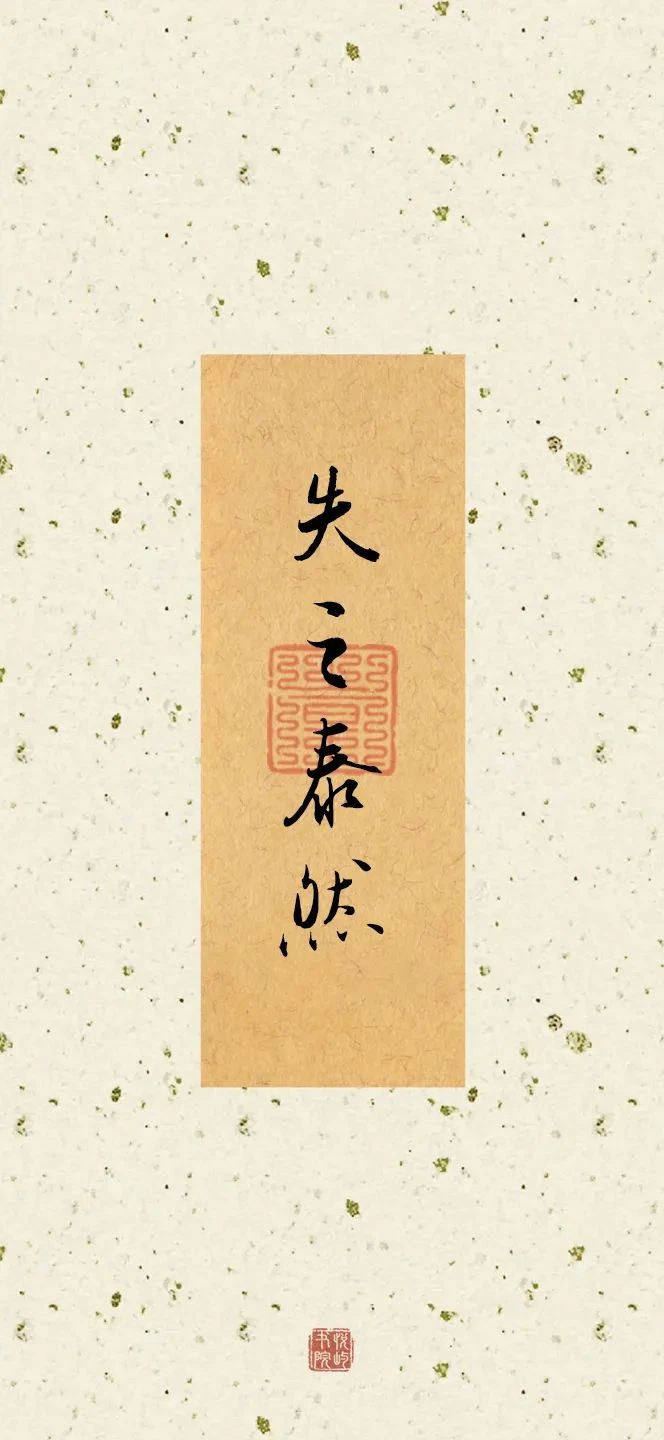 失之泰然
悦屿
书院